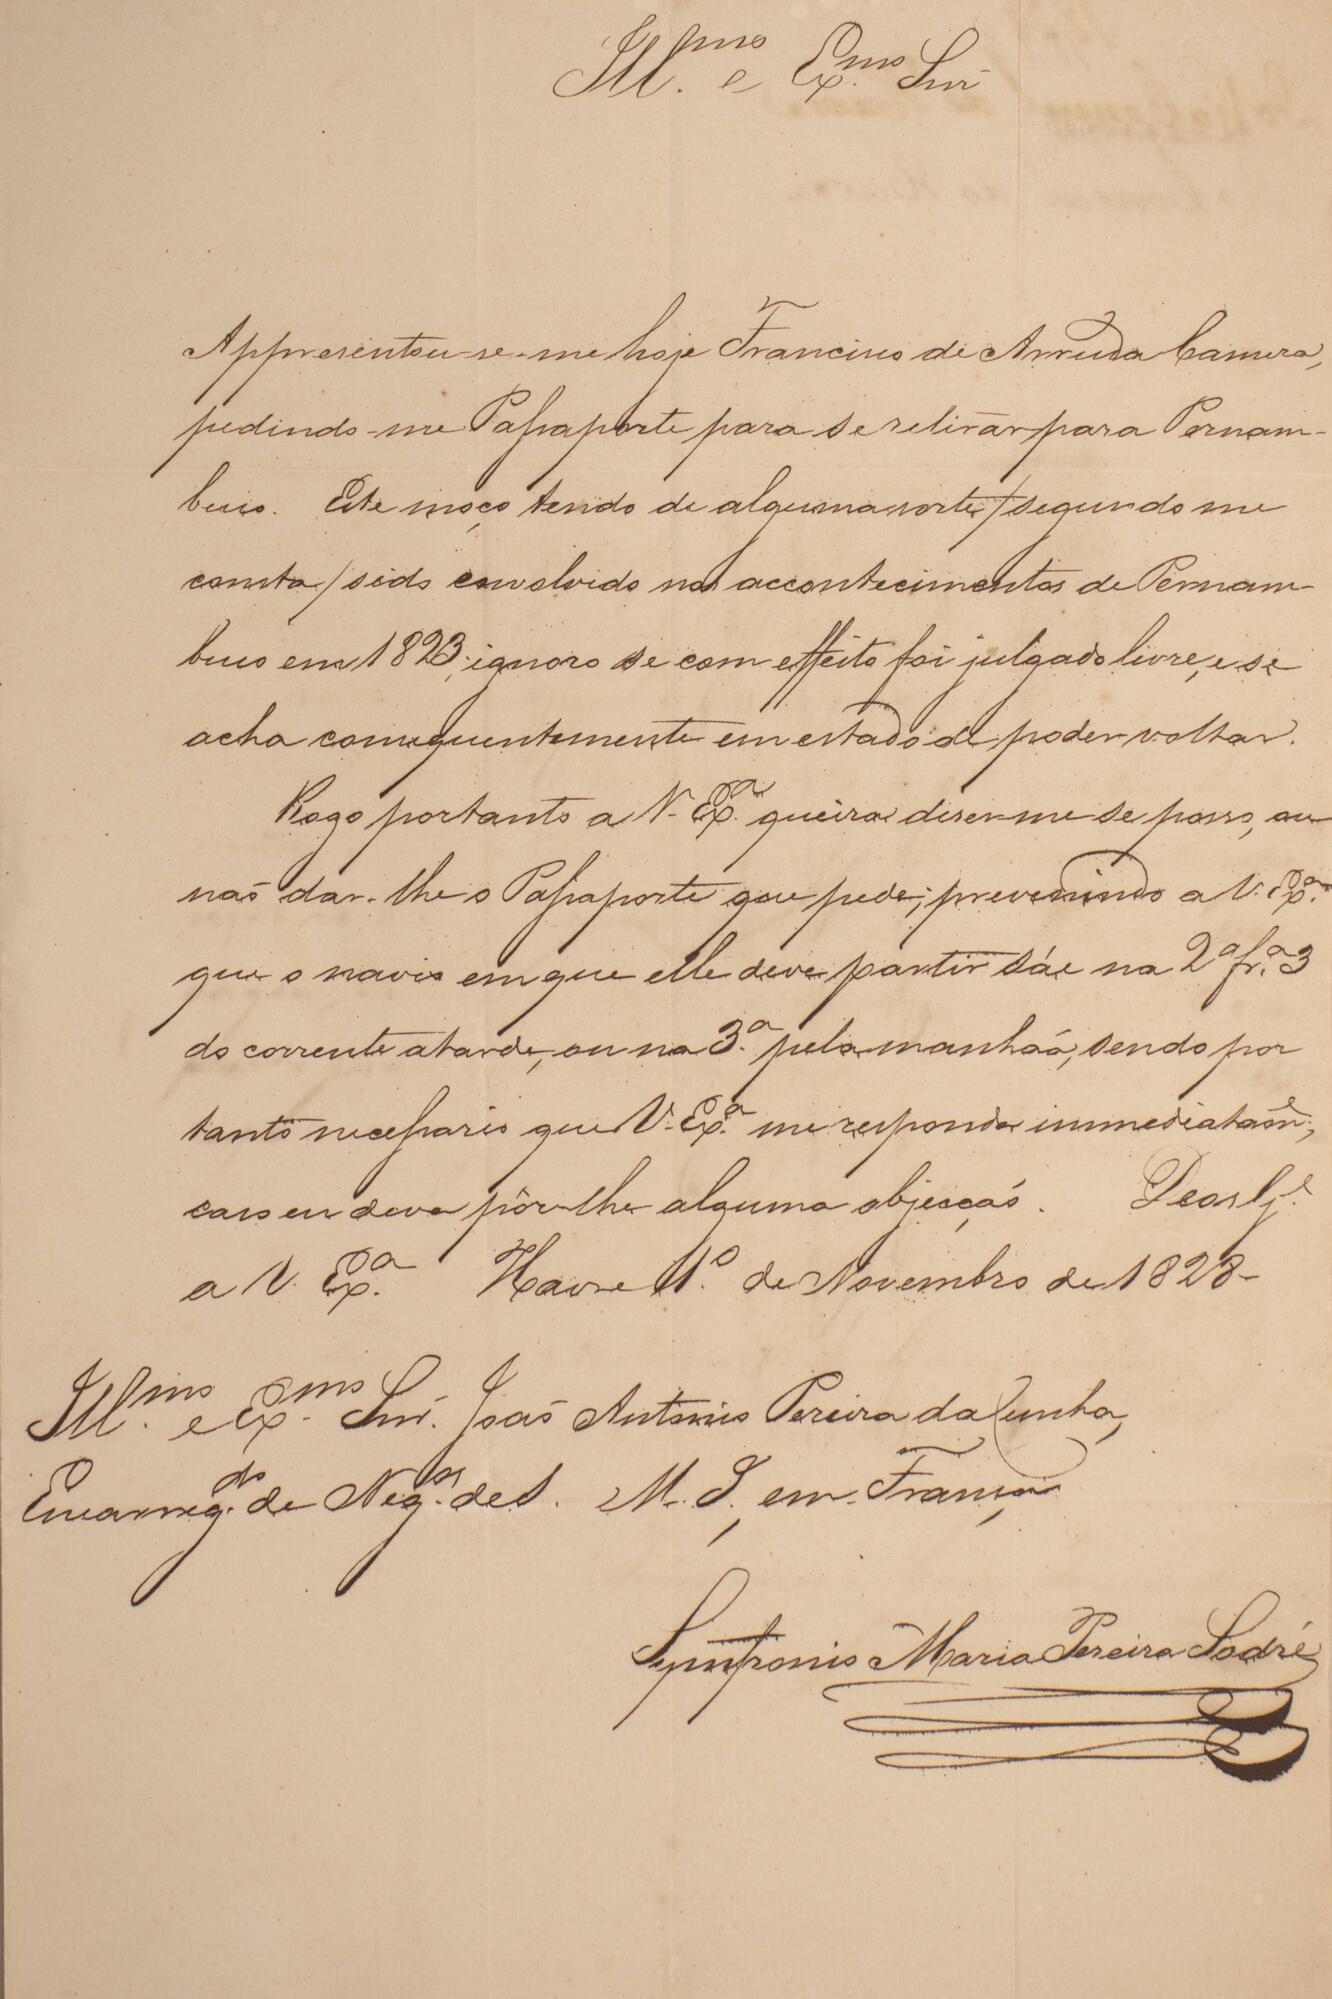 Ill.mo e Ex.mo Snr
Appresentou-se-me hoje Francisco de Arruda Camera,
pedindo-me Passaporte para se retirar para Pernam-
buco. Este moço tendo de alguma sorte / segundo me
consta / sido envolvido nos accontecimentos de Pernam-
buco em 1823, ignoro se com effeito foi julgado livre, e se
acha consequentemente em estado de poder voltar.
Rogo portanto a V. Ex.a queira diser-me se posso, ou
naõ dar-lhe o Passaporte que pede; prevenindo a V. Ex.a
que o navio em que elle deve partir sáe na 2a fr.a 3
do corrente atarde, ou na 3.a pela manhãa, sendo por
tanto necessario que V. Ex.a me responda immediatam.e,
caso eu deva pôr-lhe alguma objecçaõ. Deos G.e
a V. Ex.a Havre 1.o de Novembro de 1828-
Ill.mo e Ex.mo Snr. Joaõ Antonio Pereira da Cunha,
Encarreg.do de Neg.os de S. M. I. em França
Symfronio Maria Pereira Sodré